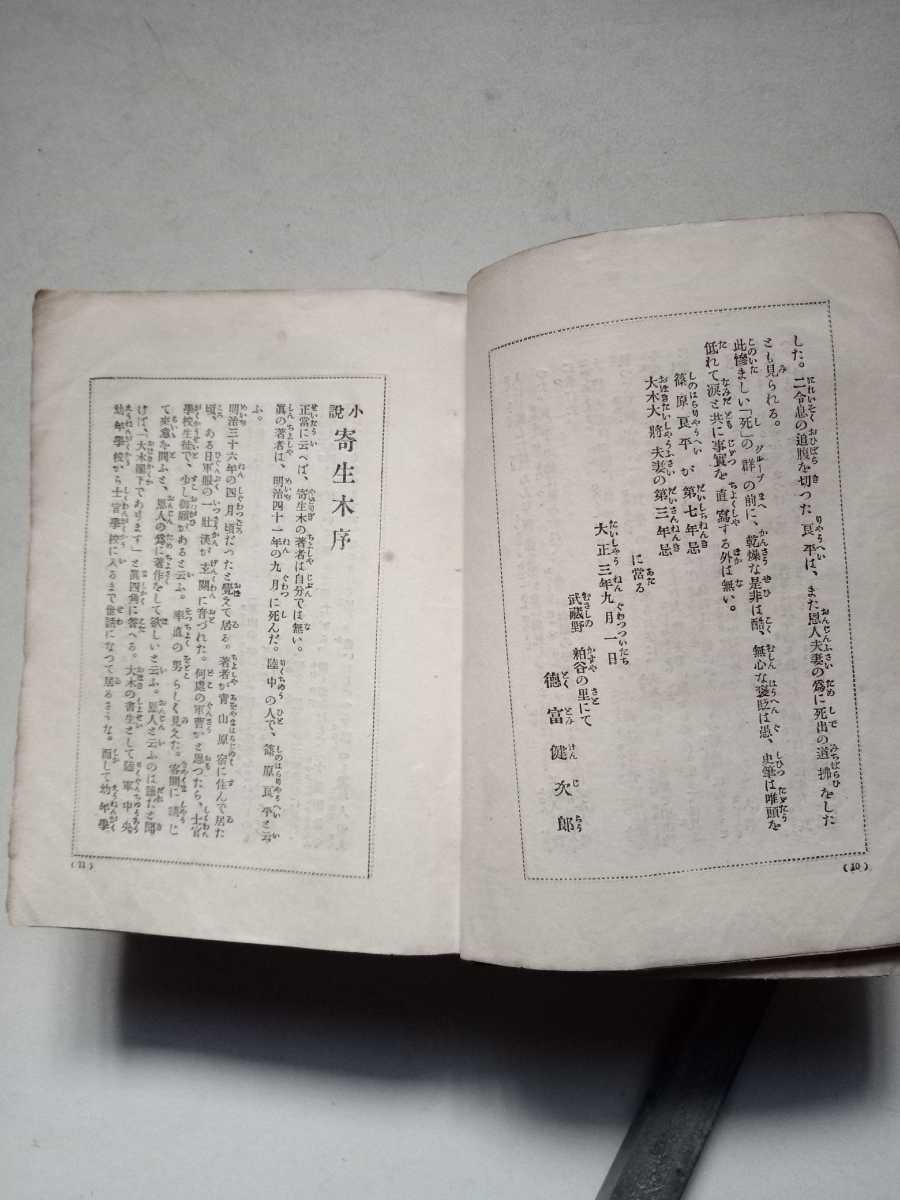 した。二令息の追腹を切つた良平は、また恩人夫妻の爲に死出の道拂をした
とも見られる。
此慘ましい「死」の群の前に、乾燥な是非は酷、無心な褒貶は愚、史筆は唯頭を
低れて涙と共に事實を直寫する外は無い。
篠原良平が第七年忌
大木大將夫妻の第三年忌
に當る
大正三年九月一日
武藏野 粕谷の里にて
德富健次郎
(10)
小説 寄生木序
正當に云へば、寄生木の著者は自分では無い。
眞の著者は、明治四十一年の九月に死んだ。陸中の人で、篠原良平と云
ふ。
明治三十六年の四月頃だつたと覺えて居る。著者が靑山原宿に住んで居た
頃、ある日軍服の一壯漢が玄關に音づれた。何處の軍曹かと思つたら、士官
學校生徒で、少し御願があると云ふ。率直の男らしく見えた。客間に請じ
て來意を問ふと、恩人の爲に著作をして欲しいと云ふ。恩人と云ふのは誰だと聞
けば、「大木閣下であります」と眞四角に答へる。大木の書生として陸軍中央
幼年學校から士官學校に入るまで世話になつて居るさうな。而して幼年學
(11)